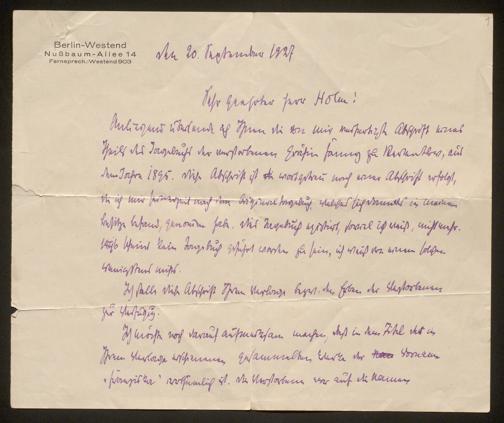 Berlin-Westend
Nußbaum-Allee 14
Fernsprech.: Westend 903
den 20. September 1927
Sehr geehrter Herr Holm!
Anliegend übersende ich Ihnen die von mir verfertigte Abschrift eines
Theils des Tagebuchs der verstorbenen Gräfin Fanny zu Reventlow, aus
dem Jahre 1895. Diese Abschrift ist wortgetreu nach einer Abschrift erfolgt,
die ich mir seinerzeit nach dem Originaltagebuch welches sich damals in meinem
Besitze befand, genommen habe. Das Tagebuch existiert, soviel ich weiß, nicht mehr.
scheint kein Tagebuch geführt worden zu sein, ich weiß von einem solchen
wenigstens nichts.
Ich stelle diese Abschrift Ihrem Verlage bezw. den Erben der Verstorbenen
zur Verfügung.
Ich möchte noch darauf aufmerksam machen, daß in dem Titel der in
Ihrem Verlage erschienenen gesammelten Werke der Vorname
„Franziska“ ist. Die Verstorbene war auf die Namen